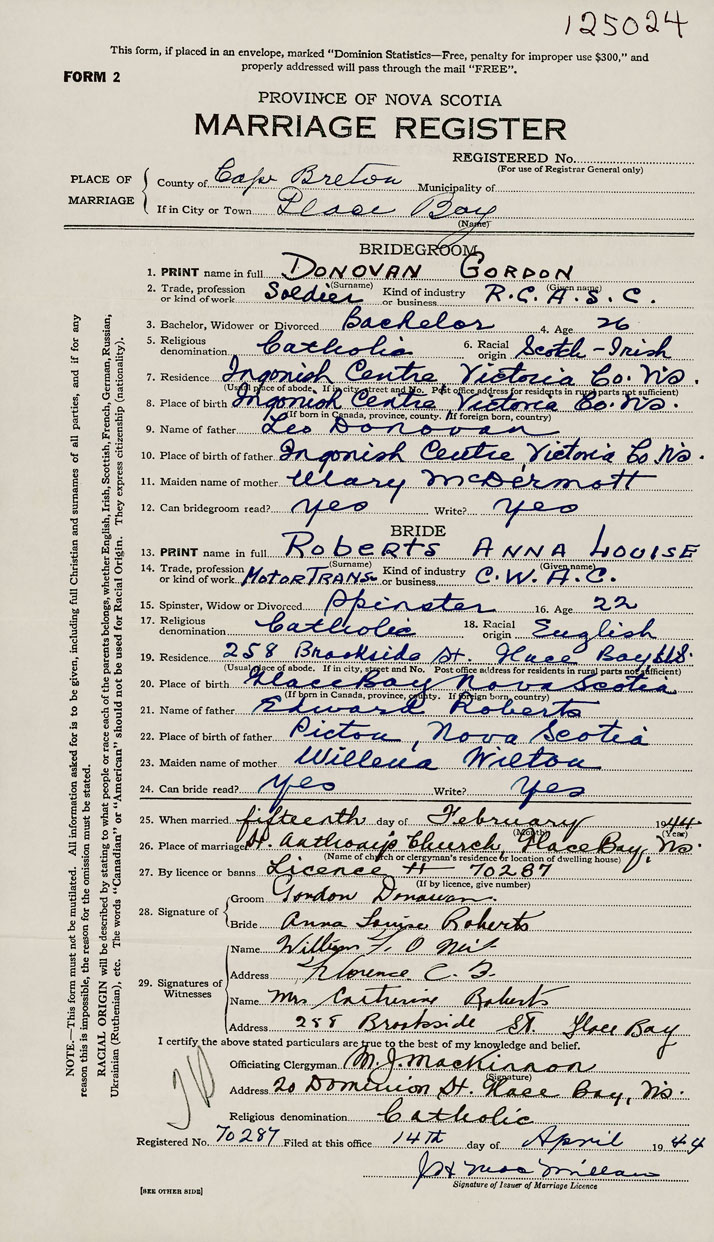 125024
This form, if placed in an envelope, marked "Dominion Statistics—Free, penalty for improper use $300," and
properly addressed will pass through the mail "FREE".
FORM 2
PROVINCE OF NOVA SCOTIA
MARRIAGE REGISTER
REGISTERED No.
(For use of Registrar General only)
PLACE OF MARRIAGE
County of Cape Breton Municipality of
If in City or Town Glace Bay
(Name)
BRIDEGROOM
1. PRINT name in full DONOVAN GORDON
(Surname) (Given name)
2. Trade, profession or kind of work Soldier Kind of industry or business R.C.A.S.C.
3. Bachelor, Widower or Divorced Bachelor 4. Age 26
5. Religious denomination Catholic 6. Racial origin Scotch-Irish
7. Residence Ingonish Centre Victoria Co. N.S.
(Usual place of abode. If in city, street and No. Post office address for residents in rural parts not sufficient)
8. Place of birth Ingonish Centre, Victoria Co. N.S.
(If born in Canada, province, county. If foreign born, country)
9. Name of father Leo Donovan
10. Place of birth of father Ingonish Centre, Victoria Co N.S.
11. Maiden name of mother Mary McDermott
12. Can bridegroom read? yes Write? yes
BRIDE
13. PRINT name in full ROBERTS ANNA LOUISE
(Surname) (Given name)
14. Trade, profession or kind of work MOTOR TRANS. Kind of industry or business C.W.A.C.
15. Spinster, Widow or Divorced Spinster 16. Age 22
17. Religious denomination Catholic 18. Racial origin English
19. Residence 258 Brookside St. Glace Bay, N.S.
(Usual place of abode. If in city, street and No. Post office address for residents in rural parts not sufficient)
20. Place of birth Glace Bay Nova Scotia
(If born in Canada, province, county. If foreign born, country)
21. Name of father Edward Roberts
22. Place of birth of father Pictou, Nova Scotia
23. Maiden name of mother Willena Wilton
24. Can bride read? yes Write? Yes
25. When married fifteenth day of February 1944
(Month) (Year)
26. Place of marriage St. Anthony's Church, Glace Bay, N.S.
(Name of church or clergyman's residence or location of dwelling house)
27. By licence or banns Licence # 70287
(If by licence, give number)
28. Signature of
Groom Gordon Donovan.
Bride Anna Louise Roberts
29. Signatures of Witnesses
Name William F. O Neil
Address Florence C. B.
Name Mrs Catherine Roberts
Address 258 Brookside St. Glace Bay
I certify the above stated particulars are true to the best of my knowledge and belief.
Officiating Clergyman M. J. MacKinnon
(Signature)
Address 20 Dominion St. Glace Bay, N.S.
Religious denomination Catholic
Registered No. 70287 Filed at this office 14th day of April 1944
J H MacMillan
Signature of Issuer of Marriage Licence
[SEE OTHER SIDE]
NOTE.—This form must not be mutilated. All information asked for is to be given, including full Christian and surnames of all parties, and if for any
reason this is impossible, the reason for the omission must be stated.
RACIAL ORIGIN will be described by stating to what people or race each of the parents belongs, whether English, Irish, Scottish, French, German, Russian,
Ukrainian (Ruthenian), etc. The words "Canadian" or "American" should not be used for Racial Origin. They express citizenship (nationality).